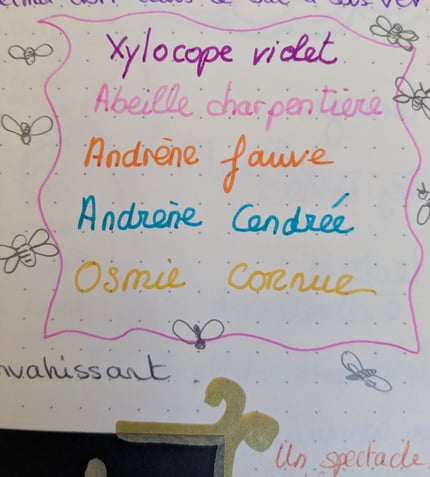 Xylocope violet
Abeille charpentière
Andrène fauve
Andrène Cendrée
Osmie Cornue
nvahissant
Un spectacle